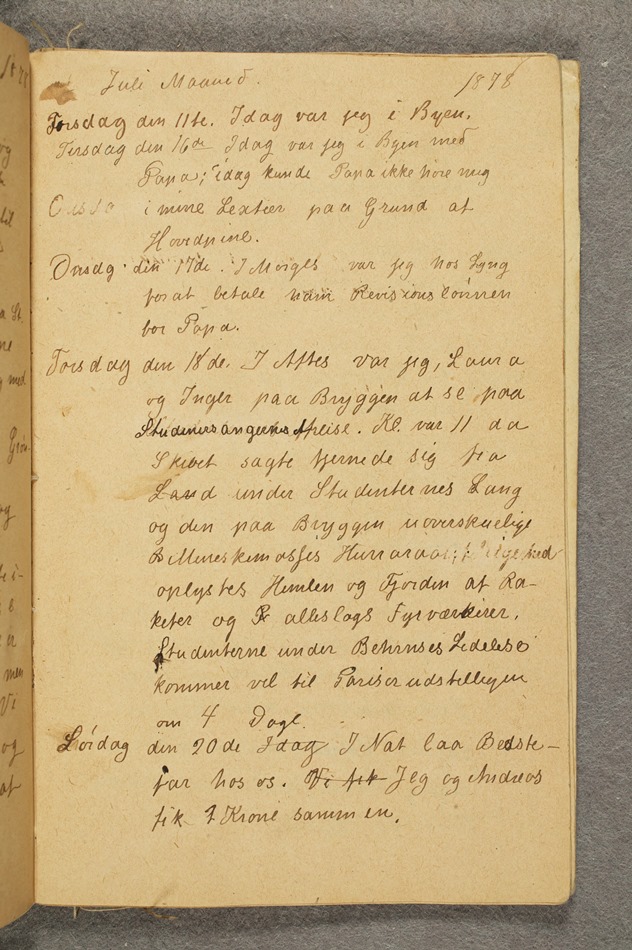 Juli Maaned. 1878
Torsdag den 11te. Idag var jeg i Byen.
Tirsdag den 16de Idag var jeg i Byen med
Papa; idag kunde Papa ikke høre mig
i mine Lextier paa Grund af
Hovedpine.
Onsdg den 17de. I Morges var jeg hos Lyng
for at betale ham Revisionslönnen
for Papa.
Torsdag den 18de. I Aftes var jeg, Laura
og Inger paa Bryggen at se paa
Studentersangernes Afreise. Kl. var 11 da
Skibet sagte fjernede sig fra
Land under Studenternes Sang
og den paa Bryggen uoverskuelige
Meneskemasses Hurraraab;
oplystes Himlen og Fjorden af Ra-
keter og alleslags Fyrværkerier.
Studenterne under Behrnses Ledelse
kommer vel til Pariserudstillingen
om 4 Dage.
Lördag den 20de Idag I Nat laa Bedste-
far hos os. Vi fik Jeg og Andreas
fik 1 Krone sammen.